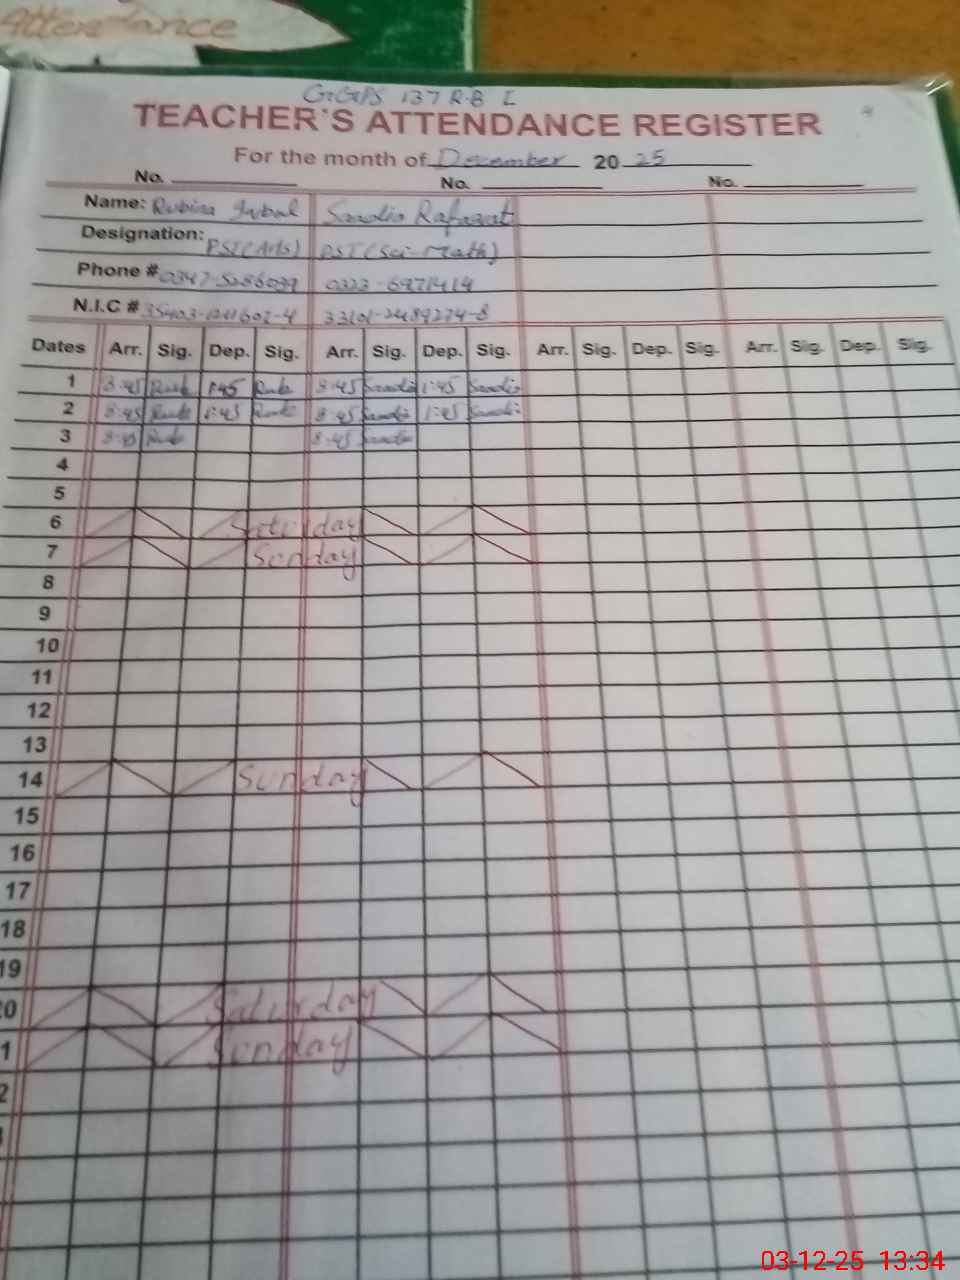 Attendance
GGPS 137 R.B I
TEACHER'S ATTENDANCE REGISTER
For the month of December 20 25
No. No. No.
Name: Rubina Iqbal Saadia Rafaqat
Designation: PST(Arts) PST(Sci-Math)
Phone #
N.I.C #
Dates Arr. Sig. Dep. Sig. Arr. Sig. Dep. Sig. Arr. Sig. Dep. Sig. Arr. Sig. Dep. Sig.
1 8:45 Rub 1:45 Rub 8:45 Saadia 1:45 Saadia
2 8:45 Rub 1:45 Rub 8:45 Saadia 1:45 Saadia
3 8:45 Rub 8:45 Saadia
4
5
6 Saturday
7 Sunday
8
9
10
11
12
13
14 Sunday
15
16
17
18
19
20 Saturday
1 Sunday
2
03-12-25 13:34